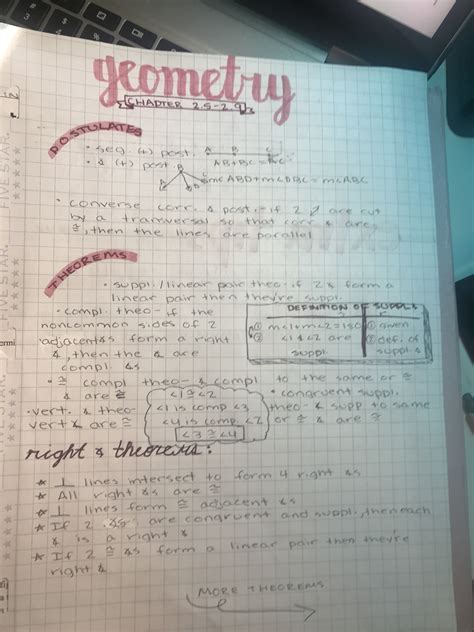 geometry
CHAPTER 2.5-2.9
POSTULATES
• seg. (+) post.
A B C
AB + BC = AC
• ∡ (+) post.
m<ABD + m<DBC = m<ABC
• converse corr. ∡ post. - if 2 are cut
by a transversal so that corr ∡ are
≅, then the lines are parallel
THEOREMS
• suppl./linear pair theo - if 2 ∡s form a
linear pair then they're suppl.
• compl. theo - if the
noncommon sides of 2
adjacent ∡s form a right
∡, then the ∡ are
compl. ∡s
DEFINITION OF SUPPL ∡
① m<1 + m<2 = 180
① given
② <1 & <2 are
suppl.
② defi. of
suppl ∡s
• ≅ compl theo - ∡ compl to the same or ≅
∡ are ≅
<1 ≅ <2
<1 is comp <3
<4 is comp. <2
<3 ≅ <4
• congruent suppl.
theo - ∡ supp to same
or ≅ ∡ are ≅
• vert. ∡ theo -
vert ∡ are ≅
right ∡ theorems:
* ⊥ lines intersect to form 4 right ∡s
* All right ∡s are ≅
* ⊥ lines form ≅ adjacent ∡s
* If 2 ∡s are congruent and suppl, then each
∡ is a right ∡
* If 2 ≅ ∡s form a linear pair then they're
right ∡
MORE THEOREMS
FIVE STAR.